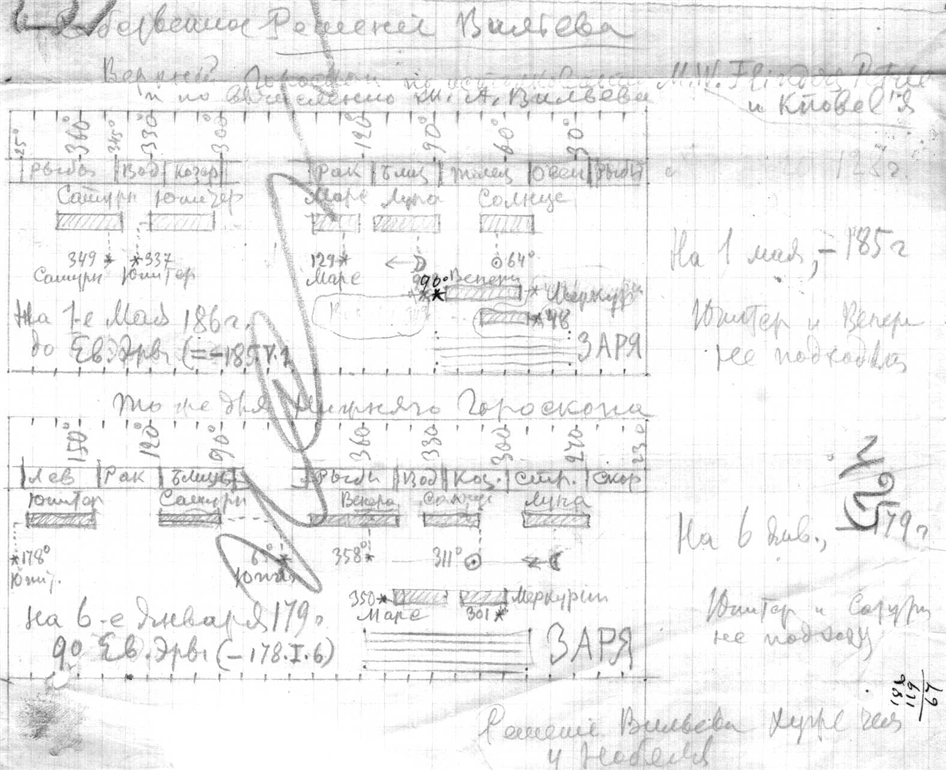 Решеній Вильева
Верхній Гороскоп
и по вычисленію М. А. Вильева
и Кнобеl'я
25° 360° 345° 330° 300° 120° 90° 60° 30°
Рыбы Вод Козер Рак Близ Телец Овен Рыбы
Сатурн Юпитер Марс Луна Солнце
349 337 129 64°
Сатурн Юпитер Марс
90° Венера Меркурій
48
На 1-е Мая 186 г.
до Ев. Эры (=-185.V.1
ЗАРЯ
На 1 мая, -185 г
Юпитер и Венера
не подходят
То же для Нижняго Гороскопа
150° 120° 90° 360 330 300 270 230
Лев Рак Близнец Рыбы Вод Коз. Стр. Скор
Юпитер Сатурн Венера Солнце Луна
178° 358° 311°
Юпит.
350 Марс 301 Меркурій
На 6-е Января 179 г
до Ев. Эры (-178.I.6)
ЗАРЯ
На 6 Янв., 179 г
Юпитер и Сатурн
не подходят
Решение Вильева хуже чем
у Кнобеля
182
119
67